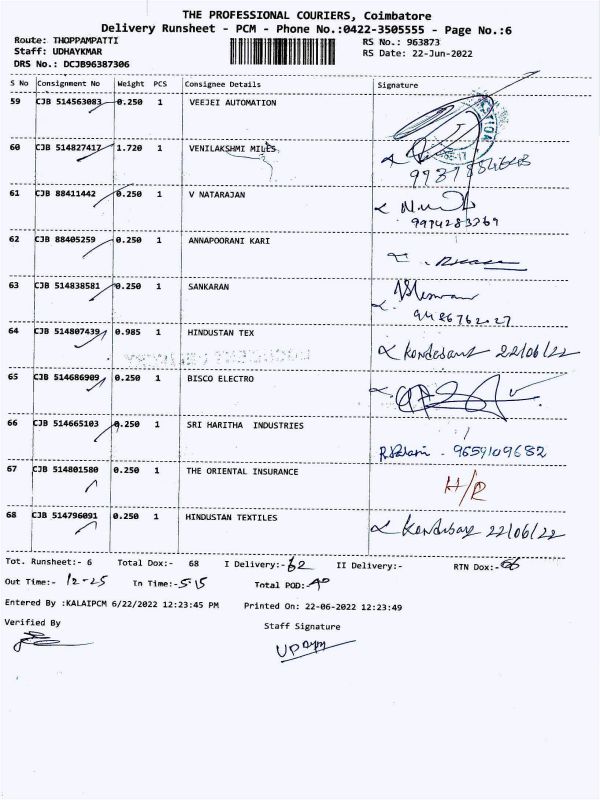 THE PROFESSIONAL COURIERS, Coimbatore
Delivery Runsheet - PCM - Phone No.:0422-3505555 - Page No.:6
Route: THOPPAMPATTI RS No.: 963873
Staff: UDHAYKMAR RS Date: 22-Jun-2022
DRS No.: DCJB96387306
S No Consignment No Weight PCS Consignee Details Signature
59 CJB 514563083 0.250 1 VEEJEI AUTOMATION
60 CJB 514827417 1.720 1 VENILAKSHMI MILLS
61 CJB 88411442 0.250 1 V NATARAJAN
9974283769
62 CJB 88405259 0.250 1 ANNAPOORANI KARI
63 CJB 514838581 0.250 1 SANKARAN
64 CJB 514807439 0.985 1 HINDUSTAN TEX
22/06/22
65 CJB 514686909 0.250 1 BISCO ELECTRO
66 CJB 514665103 0.250 1 SRI HARITHA INDUSTRIES
9659109682
67 CJB 514801580 0.250 1 THE ORIENTAL INSURANCE H/R
68 CJB 514796091 0.250 1 HINDUSTAN TEXTILES 22/06/22
Tot. Runsheet:- 6 Total Dox:- 68 I Delivery:- 62 II Delivery:- RTN Dox:- 06
Out Time:- 12-25 In Time:- 5-15 Total POD:-
Entered By :KALAIPCM 6/22/2022 12:23:45 PM Printed On: 22-06-2022 12:23:49
Verified By Staff Signature